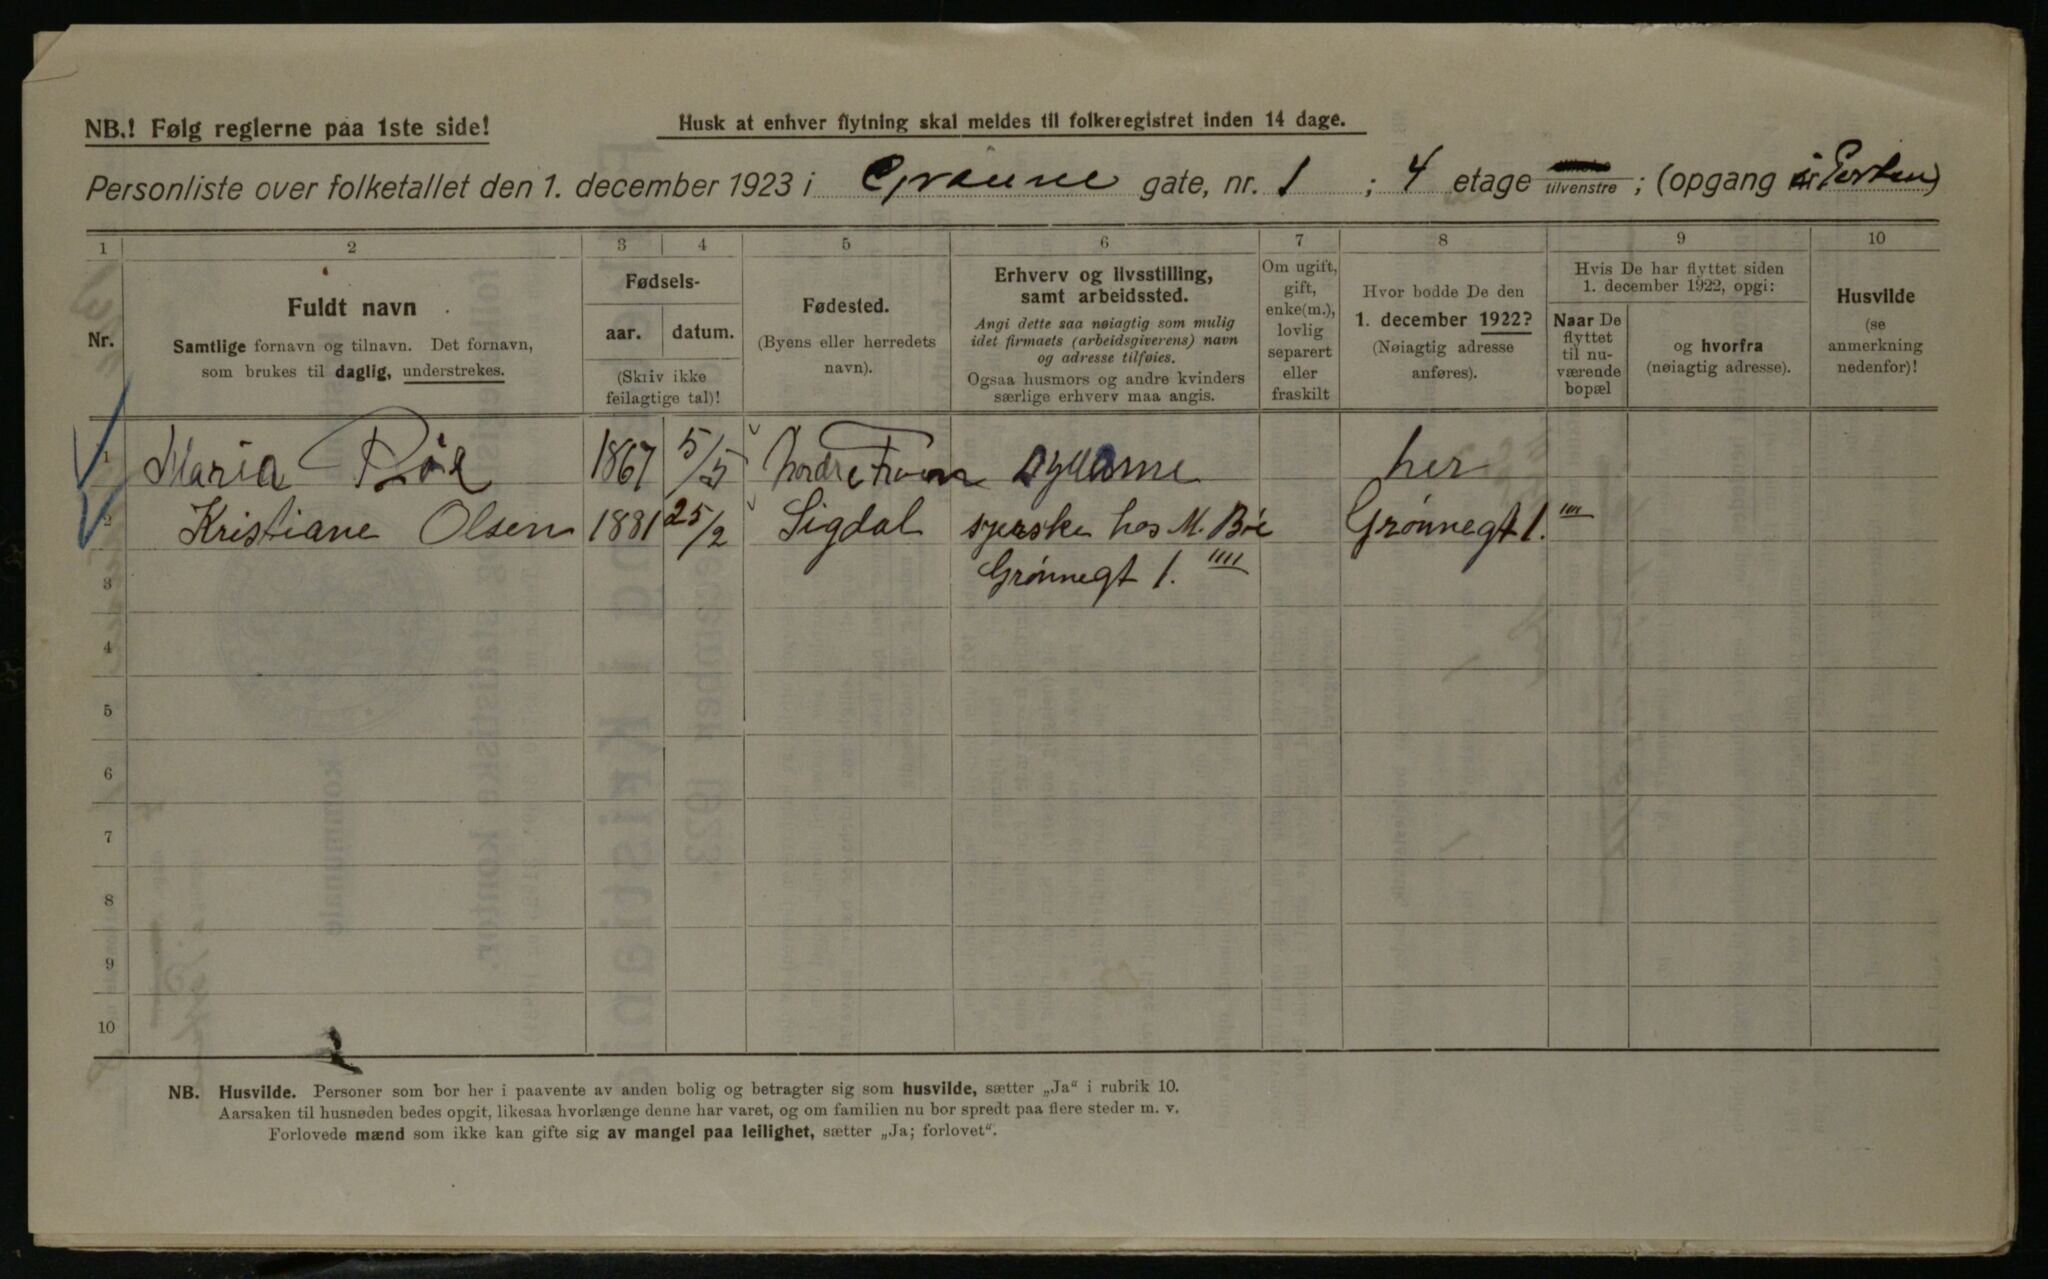 NB.! Følg reglerne paa 1ste side!
Husk at enhver flytning skal meldes til folkeregistret inden 14 dage.
Personliste over folketallet den 1. december 1923 i Grønne gate, nr. 1 ; 4 etage tilvenstre ; (opgang Porten)
1 2 3 4 5 6 7 8 9 10
Nr.
Fuldt navn
Samtlige fornavn og tilnavn. Det fornavn,
som brukes til daglig, understrekes.
Fødsels-
aar. datum.
(Skriv ikke
feilagtige tal)!
Fødested.
(Byens eller herredets
navn).
Erhverv og livsstilling,
samt arbeidssted.
Angi dette saa nøiagtig som mulig
idet firmaets (arbeidsgiverens) navn
og adresse tilføies.
Ogsaa husmors og andre kvinders
særlige erhverv maa angis.
Om ugift,
gift,
enke(m.),
lovlig
separert
eller
fraskilt
Hvor bodde De den
1. december 1922?
(Nøiagtig adresse
anføres).
Hvis De har flyttet siden
1. december 1922, opgi:
Naar De
flyttet
til nu-
værende
bopæl
og hvorfra
(nøiagtig adresse).
Husvilde
(se
anmerkning
nedenfor)!
1 Maria Böe 1867 5/5 Nordre Fron her
2 Kristiane Olsen 1881 25/2 Sigdal syerske hos M. Böe Grønnegt 1. ""
3 Grønnegt 1. """"
4
5
6
7
8
9
10
NB. Husvilde. Personer som bor her i paavente av anden bolig og betragter sig som husvilde, sætter „Ja“ i rubrik 10.
Aarsaken til husnøden bedes opgit, likesaa hvorlænge denne har varet, og om familien nu bor spredt paa flere steder m. v.
Forlovede mænd som ikke kan gifte sig av mangel paa leilighet, sætter „Ja; forlovet“.